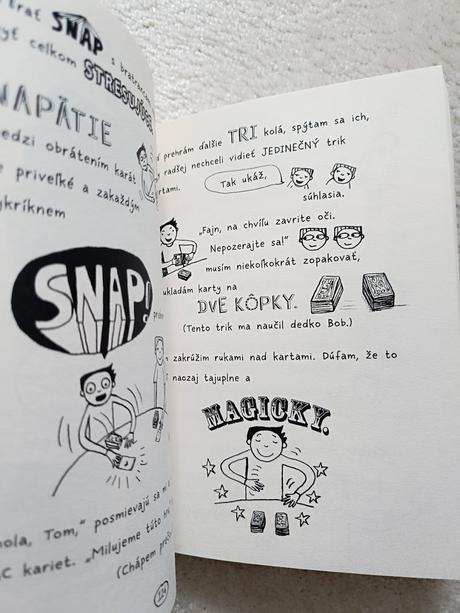 rať SNAP s bratrancami
yť celkom STRESUJÚCE
NAPÄTIE
medzi obrátením karát
e priveľké a zakaždým
ykríknem
SNAP!
hola, Tom,“ posmievajú sa mi
kariet. „Milujeme túto hru
(Chápem prečo
124
prehrám ďalšie TRI kolá, spýtam sa ich,
radšej nechceli vidieť JEDINEČNÝ trik
artami.
Tak ukáž,
súhlasia.
„Fajn, na chvíľu zavrite oči.
Nepozerajte sa!“
musím niekoľkokrát zopakovať,
ukladám karty na
DVE KÔPKY.
(Tento trik ma naučil dedko Bob.)
zakrúžim rukami nad kartami. Dúfam, že to
naozaj tajuplne a
MAGICKY.